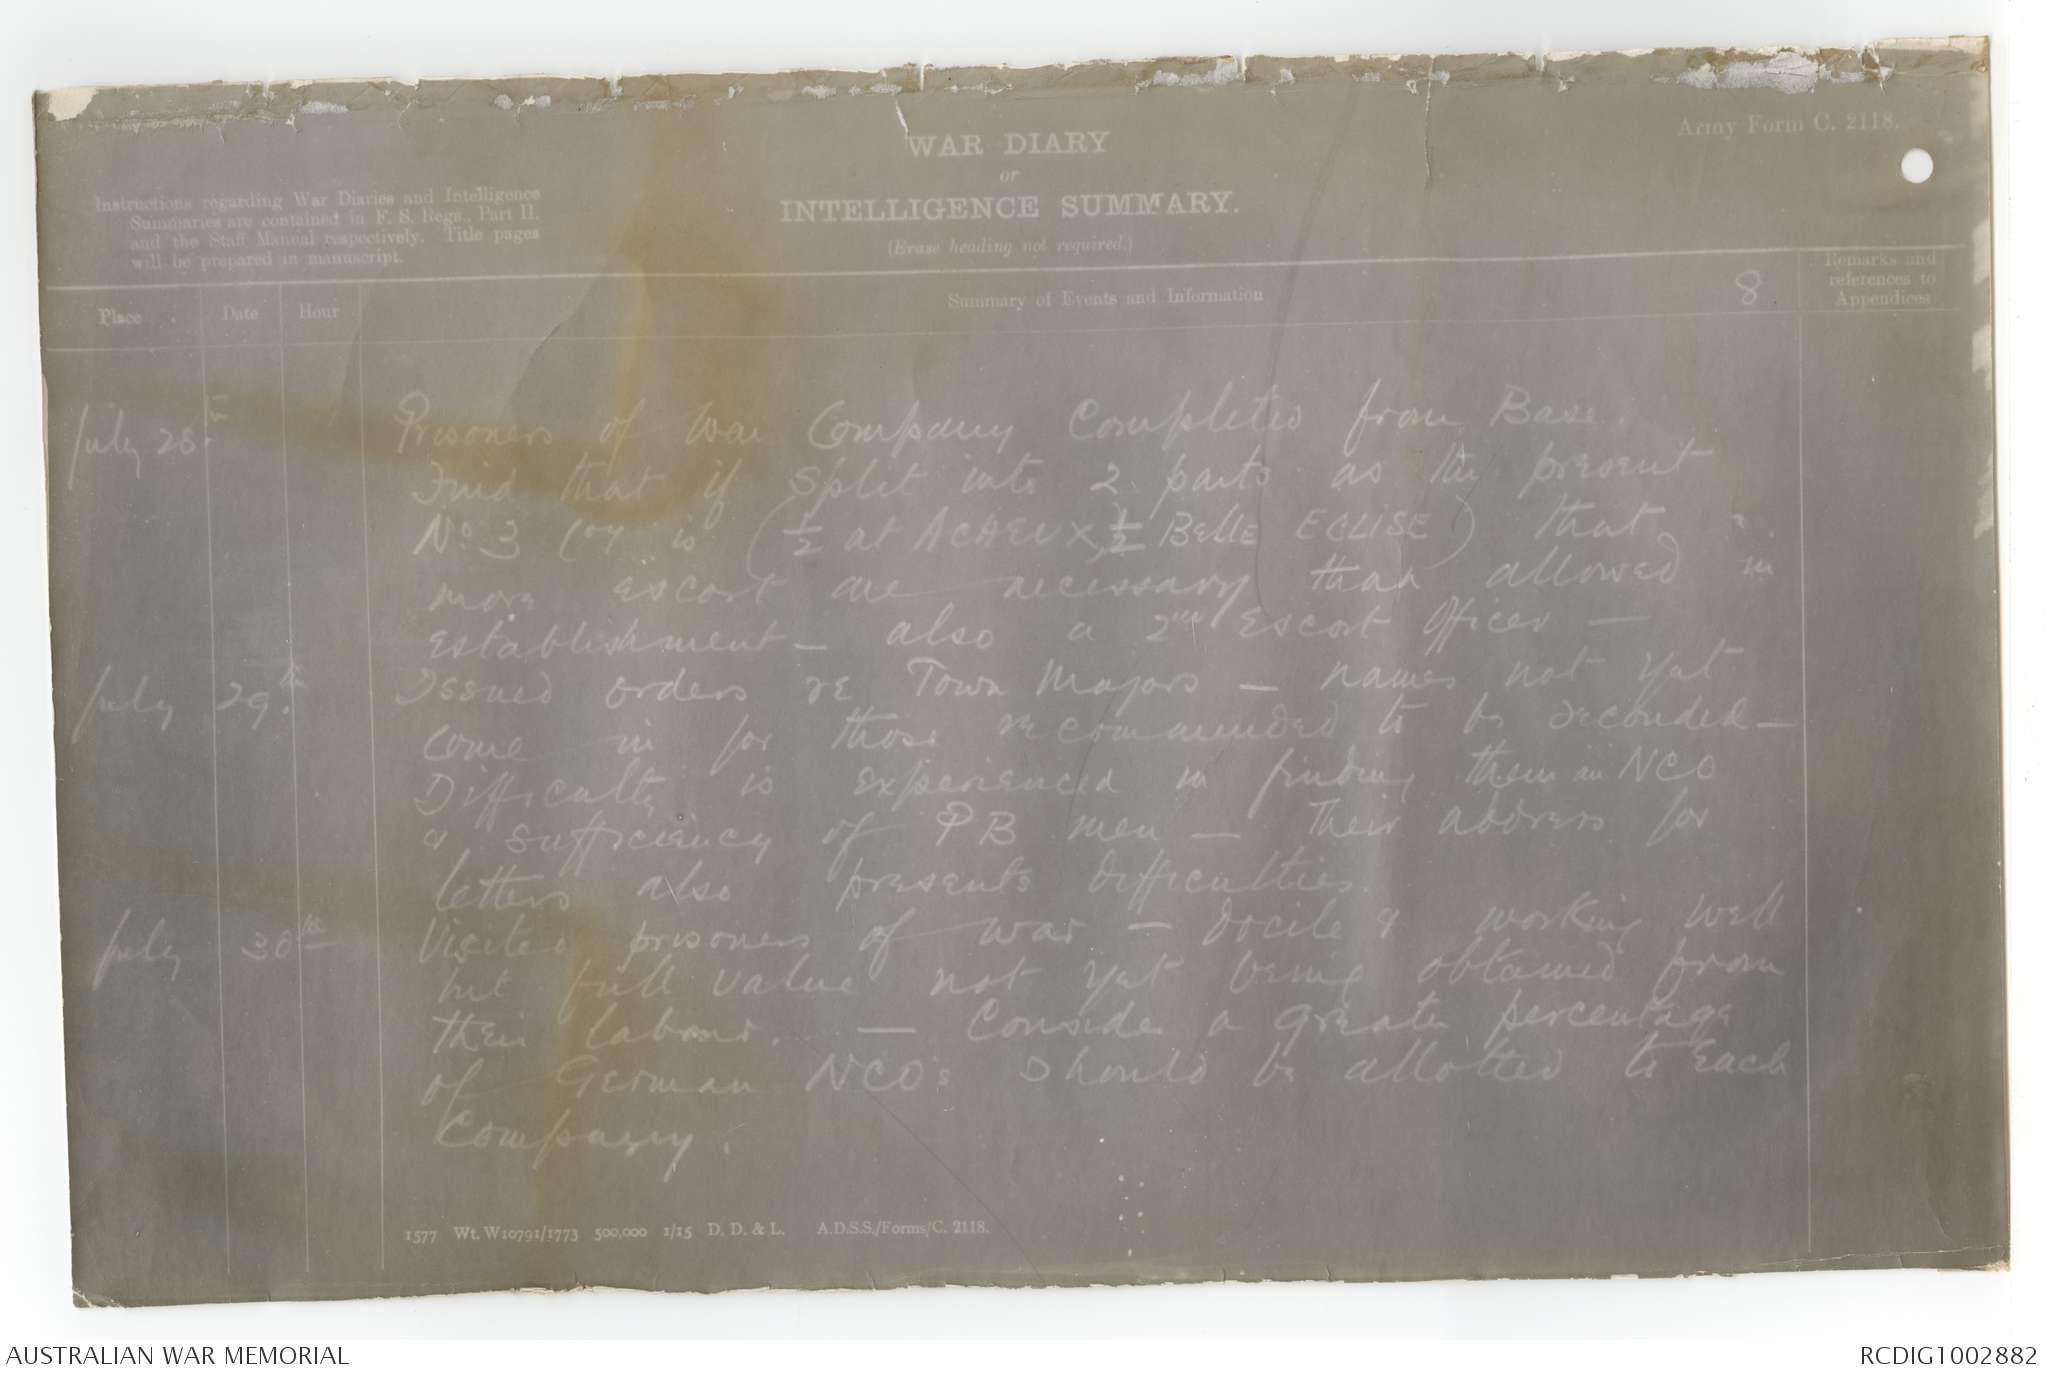 Army Form C. 2118.
WAR DIARY
or
INTELLIGENCE SUMMARY.
(Erase heading not required.)
Instructions regarding War Diaries and Intelligence
Summaries are contained in F. S. Regs., Part II.
and the Staff Manual respectively. Title pages
will be prepared in manuscript.
Place Date Hour Summary of Events and Information 8 Remarks and references to Appendices
July 28th Prisoners of War Company completed from Base.
Find that if split into 2 parts as the present
No. 3 Coy is (1/2 at ACHEUX, 1/2 BEllE EGLISE) that
more escort are necessary than allowed in
establishment - also a 2nd Escort Officer -
July 29th Issued orders re Town Majors - names not yet
come in for those recommended to be seconded -
Difficulty is experienced in finding them an NCO
& sufficiency of PB men - Their address for
letters also presents difficulties.
July 30th Visited prisoners of war - docile & working well
but full value not yet being obtained from
their labour. - Consider a greater percentage
of German NCOs should be allotted to each
Company.
1577 Wt. W10791/1773 500,000 1/15 D. D. & L. A.D.S.S./Forms/C. 2118.
AUSTRALIAN WAR MEMORIAL
RCDIG1002882